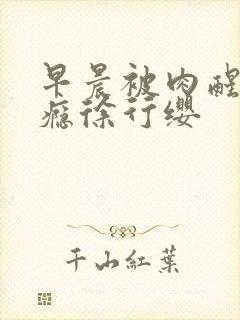 早晨被肉醒
瘾徐行缨
千山紅葉